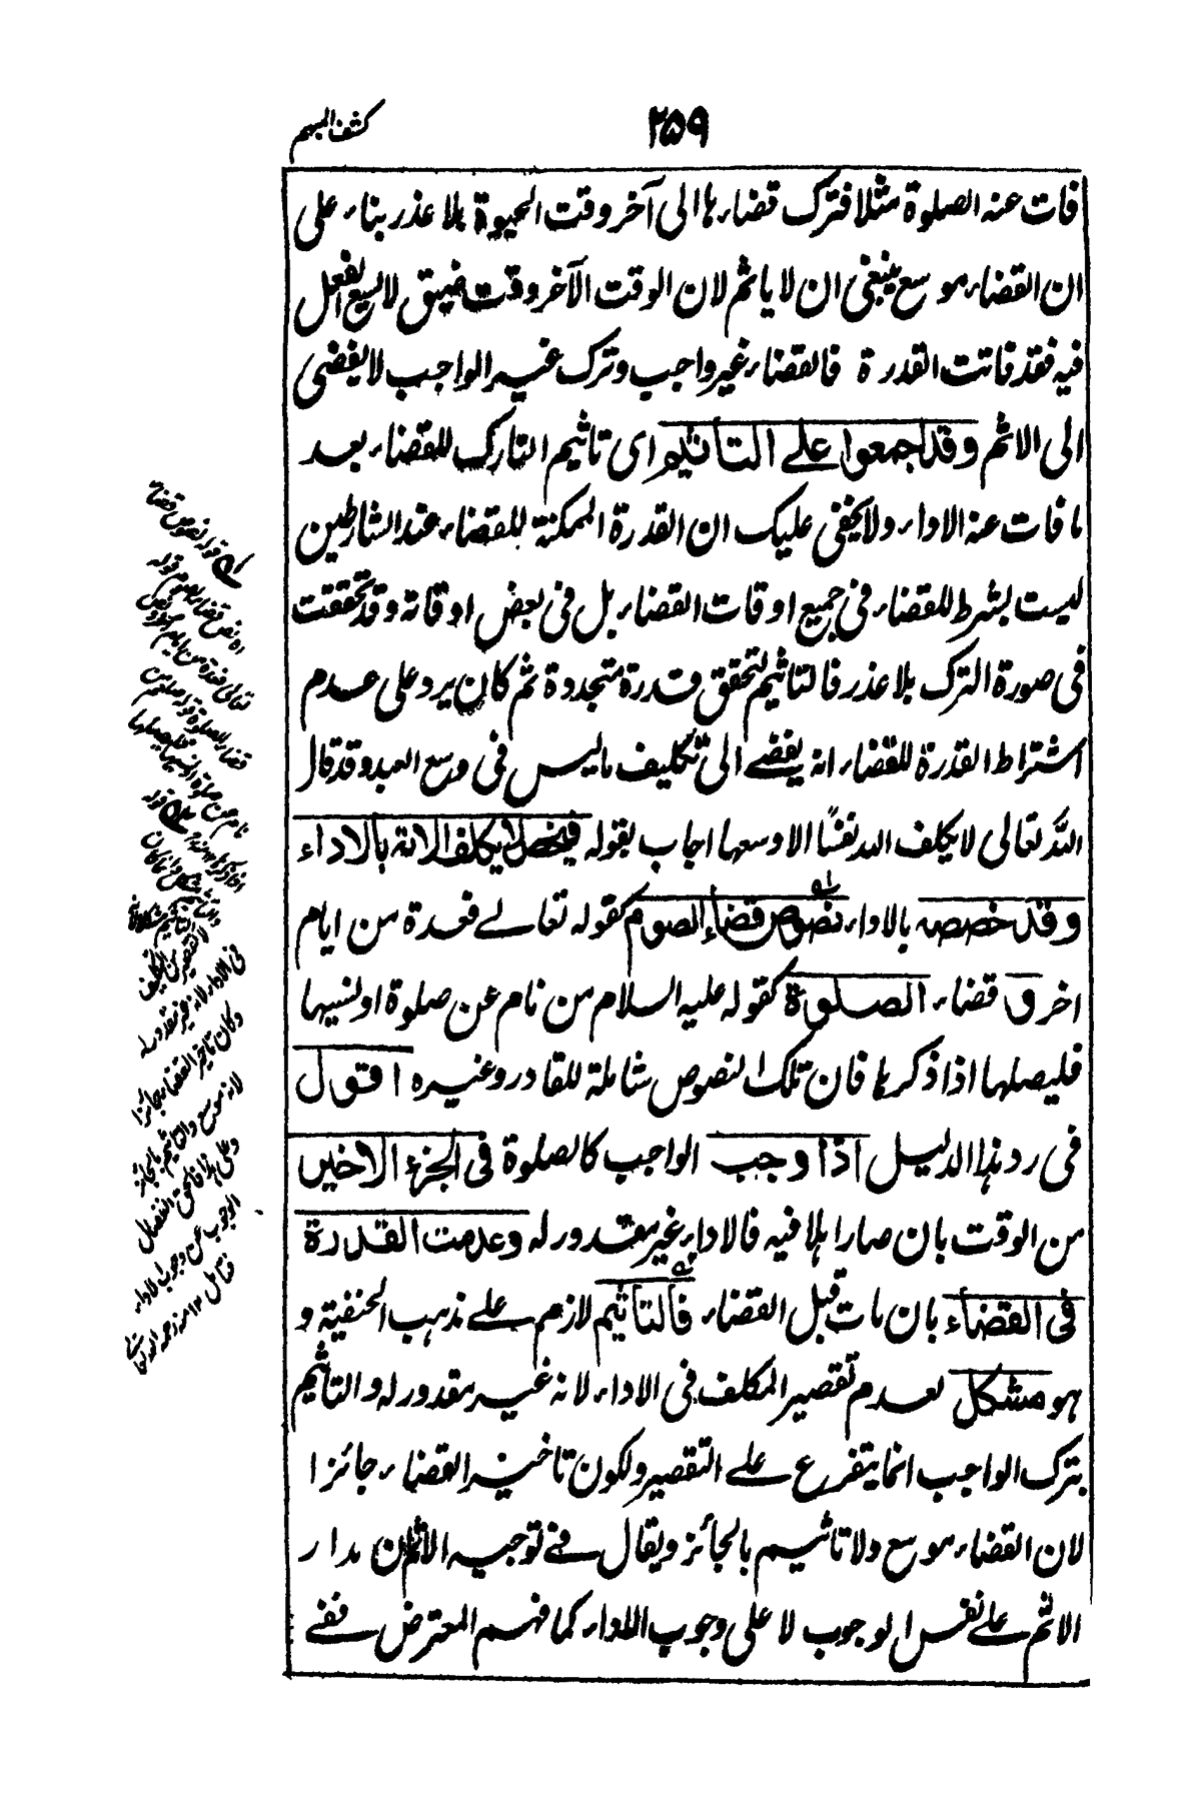 ۲۵۹
كشف المبهم
فات عنه الصلوة مثلا فترك قضاءها الى آخر وقت الحيوة بلا عذر بناء على
ان القضاء موسع ينبغى ان لا ياثم لان الوقت الآخر وقت ضيق لا يسع الفعل
فيه فقد فاتت القدرة فالقضاء غير واجب وترك غير الواجب لا يفضى
الى الاثم وقد اجمعوا على التاثيم اى تاثيم التارك للقضاء بعد
ما فات عنه الاداء ولا يخفى عليك ان القدرة الممكنة للقضاء عند الشارطين
ليست بشرط للقضاء فى جميع اوقات القضاء بل فى بعض اوقاته وقد تحققت
فى صورة الترك بلا عذر فالتاثيم لتحقق قدرة متجددة ثم كان يرد على عدم
اشتراط القدرة للقضاء انه يفضے الى تكليف ما ليس فى وسع العبد وقد قال
الله تعالى لا يكلف الله نفسًا الا وسعها اجاب بقوله فيخص لا يكلف الاية بالاداء
وقد خصصه بالاداء نصوص قضاء الصوم كقوله تعالے فعدة من ايام
اخر و قضاء الصلوة كقوله عليه السلام من نام عن صلوة او نسيها
فليصلها اذا ذكرها فان تلك النصوص شاملة للقادر وغيره اقول
فى رد هذا الدليل اذا وجب الواجب كالصلوة فى الجزء الاخير
من الوقت بان صار اهلا فيه فالاداء غير مقدور له وعدمت القدرة
فى القضاء بان مات قبل القضاء فالتاثيم لازم علے مذهب الحنفية و
هو مشكل لعدم تقصير المكلف فى الاداء لانه غير مقدور له والتاثيم
بترك الواجب انما يتفرع علے التقصير ولكون تاخير القضاء جائزا
لان القضاء موسع ولا تاثيم بالجائز ويقال فے توجيه الاثم ان مدار
الاثم علے نفس الوجوب لا على وجوب الاداء كما فهم المعترض ففے
قوله نصوص قضاء
اه نص قضاء الصوم قوله
تعالى فعدة من ايام اخر ونص
قضاء الصلوة قوله صلعم من
نام عن صلوة او نسيها فليصلها
اذا ذكرها منه قوله
فى الاداء لانه غير مقدور له
وكان تاخير القضاء جائزا
لانه موسع ولا تاثيم بالجائز
وعلى هذا فانتحقق انفصال
الوجوب عن وجوب الاداء
فتامل ١٢ منه رحمه الله تعالى